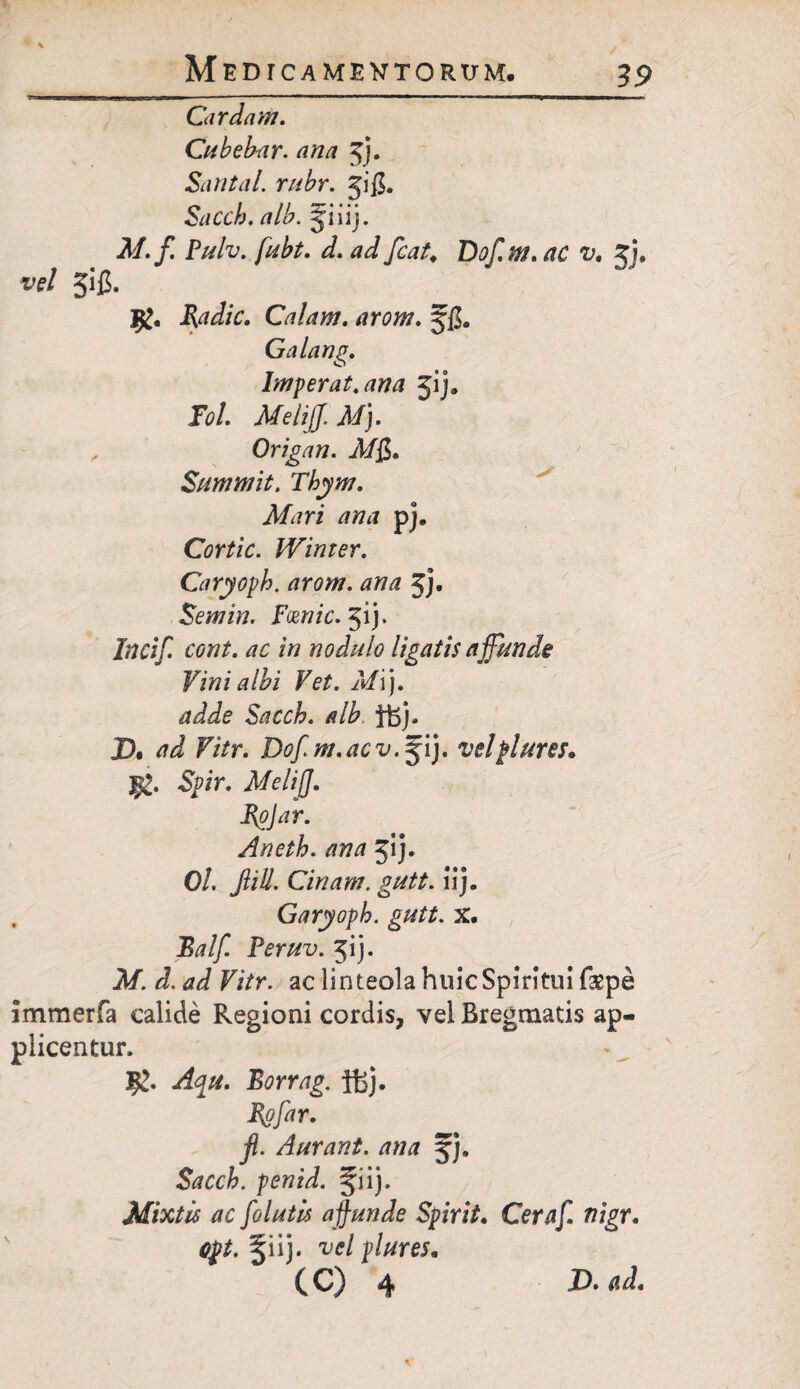 MEDICAMENTORUM. 39
Cardam.
Cubebar. ana ʒj.
Santal. rubr. ʒiß.
Sacch. alb. ℥iiij.
M. f. Pulv. ſubt. d. ad ſcat. Doſ. m. ac v. ʒj.
vel ʒiß.
℞. Radic. Calam. arom. ℥ß.
Galang.
Imperat. ana ʒij.
Fol. Meliſſ. Mj.
Origan. Mß.
Summit. Thym.
Mari ana pj.
Cortic. Winter.
Caryoph. arom. ana ʒj.
Semin. Fœnic. ʒij.
Inciſ. cont. ac in nodulo ligatis affunde
Vini albi Vet. Mij.
adde Sacch. alb ℔j.
D. ad Vitr. Doſ. m. ac v. ℥ij. vel plures.
℞. Spir. Meliſſ.
Roſar.
Aneth. ana ʒij.
Ol. ſtill. Cinam. gutt. iij.
Garyoph. gutt. x.
Balſ. Peruv. ʒij.
M. d. ad Vitr. ac linteola huic Spiritui ſæpè
immerſa calidè Regioni cordis, vel Bregmatis ap-
plicentur.
℞. Aqu. Borrag. ℔j.
Roſar.
fl. Aurant. ana ℥j.
Sacch. penid. ℥iij.
Mixtis ac ſolutis affunde Spirit. Ceraſ. nigr.
opt. ℥iij. vel plures.
(C) 4 D. ad.